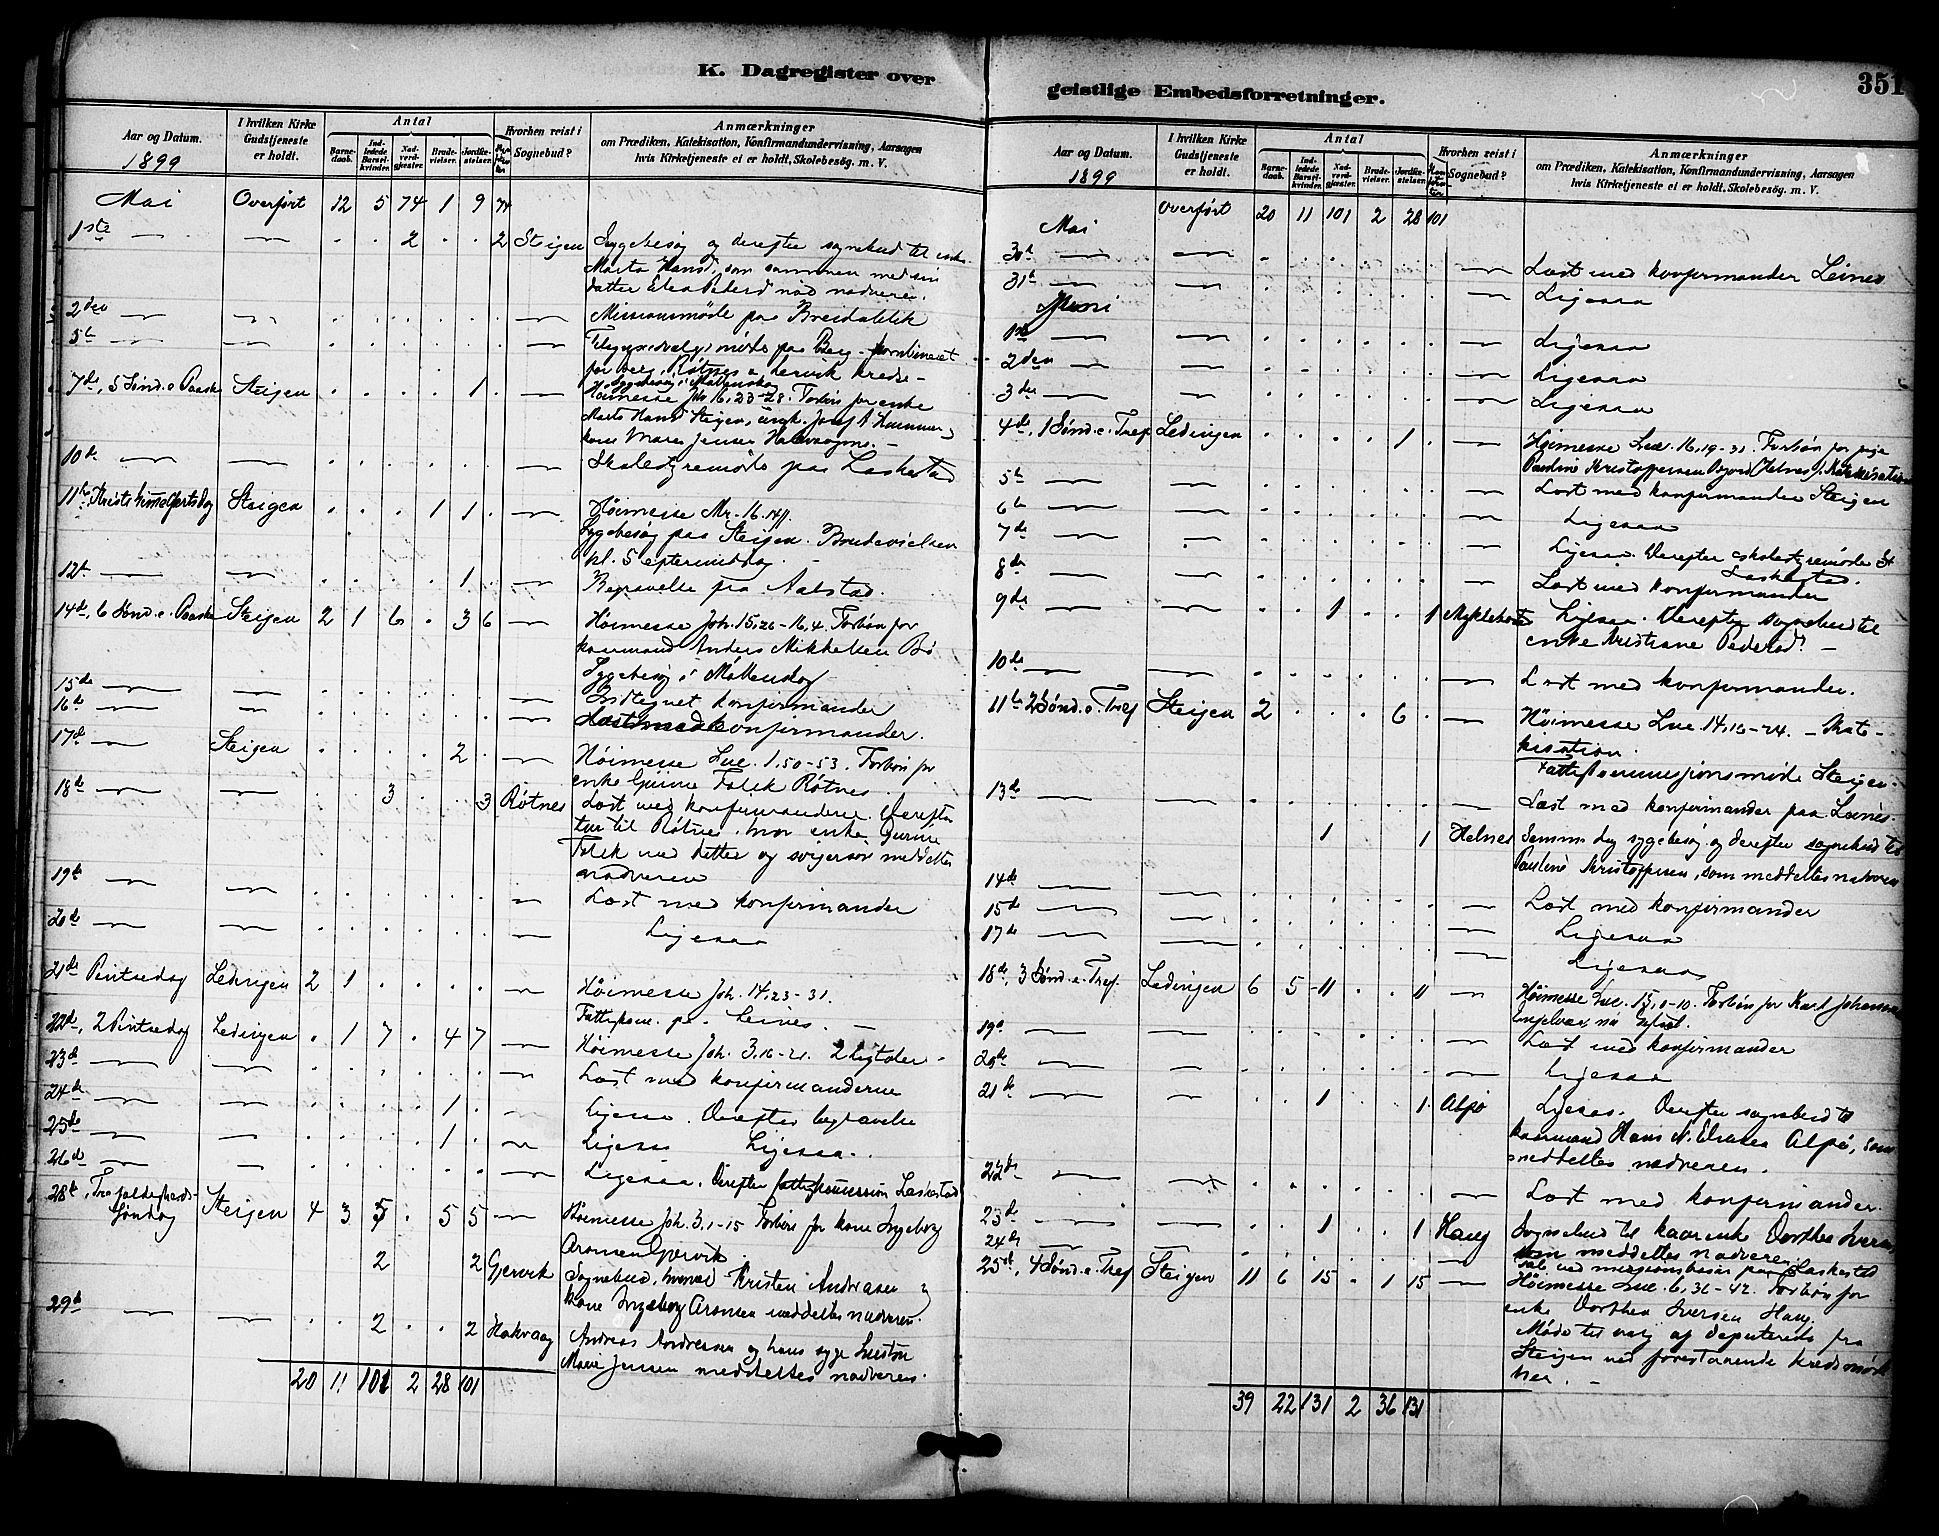 K. Dagregister over
Aar og Datum.
1899
I hvilken Kirke Gudstjeneste er holdt.
Antal
Barnedaab.
Indledede Barselkvinder.
Nadverdgjester.
Brudevielser.
Jordfæstelser.
Hvorhen reist i Sognebud?
Anmærkninger
om Prædiken, Katekisation, Konfirmandundervisning, Aarsagen
hvis Kirketjeneste ei er holdt, Skolebesøg. m. V.
Mai Overført 12 5 74 1 9 74
1ste — — . . 2 . . 2 Steigen Sygebesøg og derefter sognebud til enke
Marta Hansd. som sammen med sin
datter Elen Pedersd nød nadveren.
2den — — . . . . . . — Missionsmøde paa Breidablik
5te — — . . . . . . — paa Berg
for Berg, Røtnes & Lervik kredse —
Sygebesøg i
7de, 5 Sønd. e. Paaske Steigen . . . . 1 . — Høimesse Joh 16, 23-28. Forbøn for enke
Marta Hansd Steigen,
kone Maren Jensen
10de — — . . . . . . — Skolestyremøde paa Laskestad
11te Kristi himmelfartsdag Steigen . . . 1 1 . — Høimesse Mr. 16.14ff.
Sygebesøg paa Steigen. Brudevielsen
kl. 5 eftermiddag.
12te — — . . . . 1 . — Begravelse paa
14de, 6 Sønd. e. Paaske Steigen 2 1 6 . 3 6 Høimesse Joh. 15,26-16,4. Forbøn for
Anders Mikkelsen Bø
Sygebesøg i
15de — — . . . . . . — Indtegnet konfirmander
16de — — . . . . . . — Læst med konfirmander.
17de — Steigen . . . . 2 . — Høimesse Luc. 1.50-53. Forbøn for
enke Gurine Falck Røtnes.
18de — — . . 3 . . 3 Røtnes Læst med konfirmanderne. Derefter
tur til Røtnes, hvor enke Gurine
Falck med datter og svigersøn meddeltes
nadveren
19de — — . . . . . . — Læst med konfirmander
20de — — . . . . . . — Ligesaa
21de Pintsedag Ledingen 2 1 . . . . — Høimesse Joh. 14,23-31.
Fattigkom. paa Leines. —
22de, 2 Pintsedag Ledingen . 1 7 . 4 7 — Høimesse Joh. 3.16-21. 2 ligtaler
23de — — . . . . . . — Læst med konfirmanderne
24de — — . . . . 1 . — Ligesaa. Derefter begravelse
25de — — . . . . 1 . — Ligesaa Ligesaa.
26de — — . . . . . . — Ligesaa. Derefter fattigkommission Laskestad
28de, Trefoldigheds-
søndag Steigen 4 3 5 . 5 5 — Høimesse Joh. 3,1-15 Forbøn for kone Ingeborg
Aronsen Gjervik.
2 2 Gjervik Sognebud, hvorved Kristen Andreasen og
kone Ingeborg Aronsen meddeltes nadveren.
29de — — . . 2 . . 2 Hakvaag Andreas Andreasen og hans syge hustru
Marie Jensen meddeltes nadveren.
20 11 101 2 28 101
geistlige Embedsforretninger.
351
Aar og Datum.
1899
I hvilken Kirke Gudstjeneste er holdt.
Antal
Barnedaab.
Indledede Barselkvinder.
Nadverdgjester.
Brudevielser.
Jordfæstelser.
Hvorhen reist i Sognebud?
Anmærkninger
om Prædiken, Katekisation, Konfirmandundervisning, Aarsagen
hvis Kirketjeneste ei er holdt, Skolebesøg. m. V.
Overført 20 11 101 2 28 101
Mai
30te — — . . . . . . — Læst med konfirmander Leines
31te — — . . . . . . — Ligesaa
Juni
1ste — — . . . . . . — Ligesaa
2den — — . . . . . . — Ligesaa
3die — — . . . . . . — Ligesaa
4de, 1 Sønd. e. Tref Ledingen . . . . 1 . — Høimesse Luc. 16,19-31. Forbøn for pige
Pauline Kristoffersen Helnes. Katekisation
5te — — . . . . . . — Læst med konfirmander Steigen
6te — — . . . . . . — Ligesaa
7de — — . . . . . . — Ligesaa. Derefter skolestyremøde
Laskestad.
8de — — . . . . . . — Læst med konfirmander
9de — — . . 1 . . 1 Myklebost Ligesaa. Derefter sognebud til
enke Kristiane Pedersd. —
10de — — . . . . . . — Læst med konfirmander.
11te 2 Sønd. e. Tref Steigen 2 . . . 6 . — Høimesse Luc. 14,16-24. — Kate-
kisation.
Fattigkommissjonsmøde Steigen.
13de — — . . . . . . — Læst med konfirmander paa Leines.
1 1 Helnes Samme dag sygebesøg og derefter sognebud til
Pauline Kristoffersen, som meddeltes nadveren
14de — — . . . . . . — Læst med konfirmander
15de — — . . . . . . — Ligesaa
17de — — . . . . . . — Ligesaa
18de, 3 Sønd. e. Tref. Ledingen 6 5 11 . . 11 — Høimesse Luc. 15,1-10. Forbøn for Karl Johansen
Engelvær
19de — — . . . . . . — Læst med konfirmander
20de — — . . . . . . — Ligesaa
21de — — . . 1 . . 1 Alpø Ligesaa. Derefter sognebud til
Hans N. Alpø, som
meddeltes nadveren.
22de — — . . . . . . — Læst med konfirmander.
23de — — . . 1 . . 1 Haug Sognebud til enke Dorthea Iversen,
som meddeltes nadveren
24de — — . . . . . . — paa Laskestad
25de, 4 Sønd. e. Tref Steigen 11 6 15 . 1 15 — Høimesse Luc. 6,36-42. Forbøn for
enke Dorthea Iversen Haug.
Møde til valg af deputerede fra
Steigen ved forestaaende kredsmøde
her. —
39 22 131 2 36 131